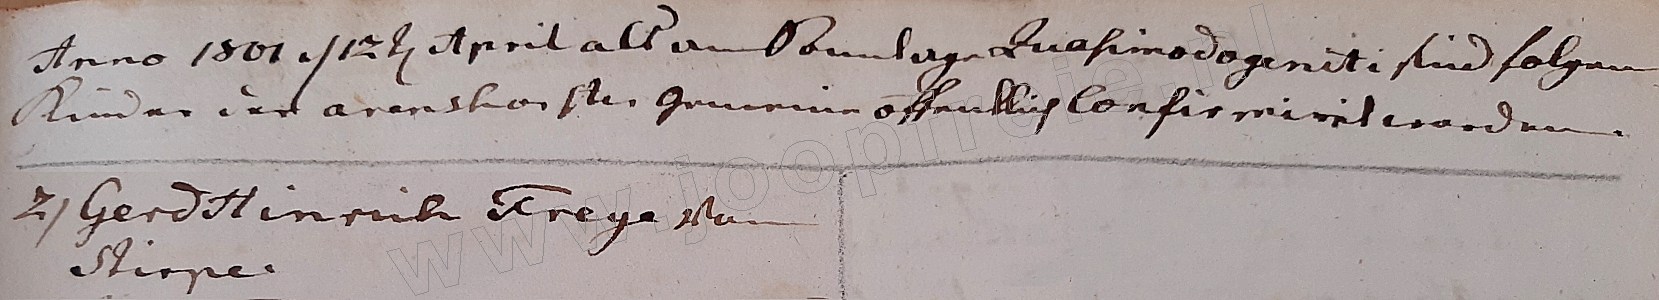 Anno 1801 d 12t April als am Sonntage Quasimodogeniti sind folgen
Kinder der arenshorster Gemeine öffentlich Confirmiret worden.
2) Gerd Hinrich Freye von
Stirpe.
www.joopirejo.nl